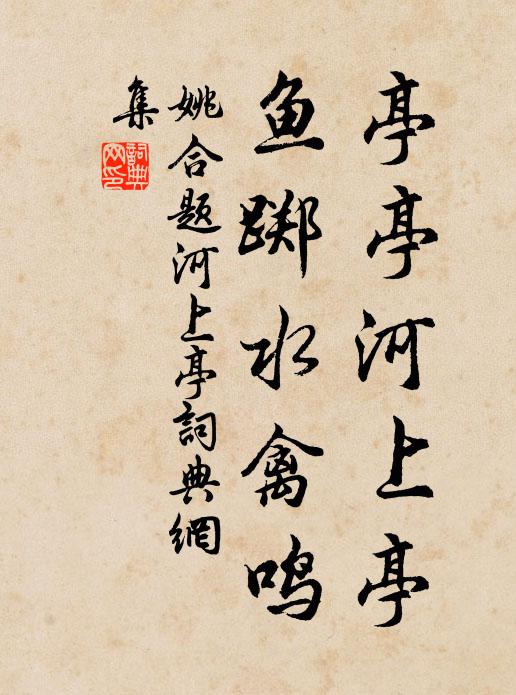 亭亭河上亭
鱼踯水禽鸣
姚合题河上亭詞典網
集
詞典
网印